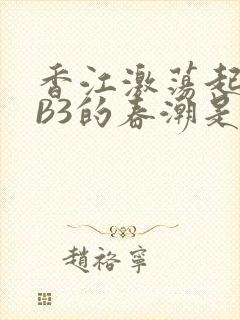 香江激荡起
B3的春潮是
趙裕寧